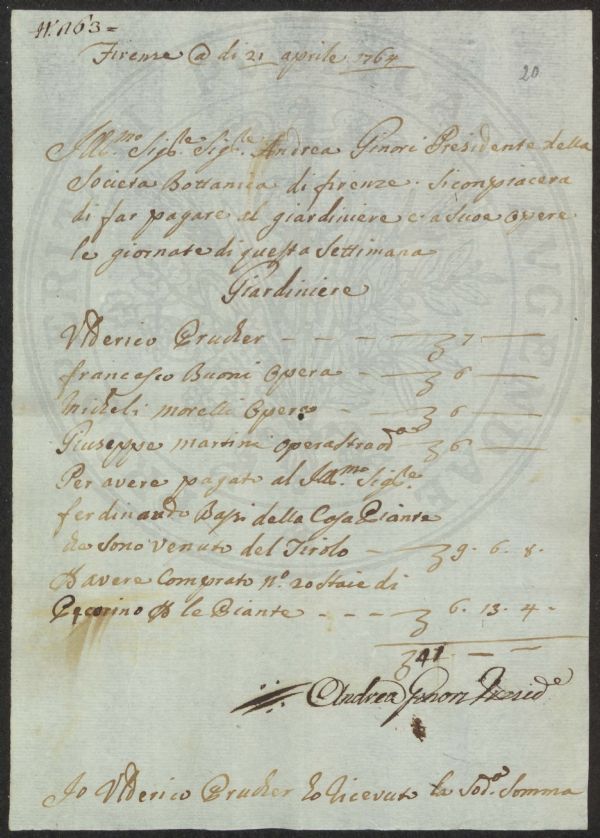 N. 163=
Firenze @ di 21 aprile 1764
20
Ill.mo Sig.re Sig.re Andrea Ginori Presidente della
Societa Bottanica di firenze. Si conpiacera
di far pagare al giardiniere e a Suoe opere
le giornate di questa Settimana
Giardiniere
Vlderico Prucker - - - 7 -
francesco Buoni Opera - 6 -
Micheli Morelli Opera - 6 -
Giuseppe Martini opera straord - 6 -
Per avere pagato al Ill.mo Sig.re
ferdinando Bassi della Casa Piante
da Sono Venuto del Tirolo - 9. 6. 8.
P avere Comprato n.o 20 Staie di
Pecorino P le Piante - - - 6. 13. 4 -
41 - -
Andrea Ginori Presid.e
Jo Vlderico Prucker ho ricevuto la Sod.a Somma